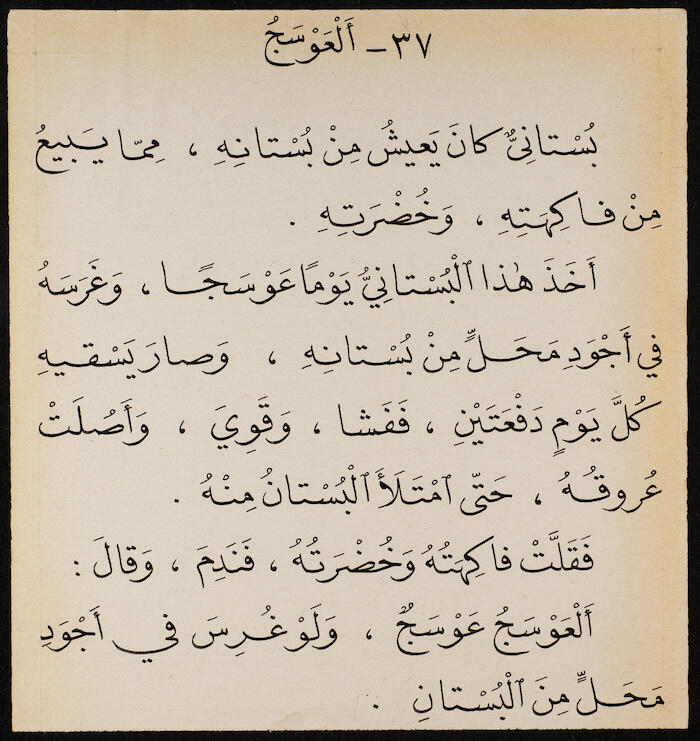 ٣٧ - أَلْعَوْسَجُ
بُسْتانِيٌّ كانَ يَعيشُ مِنْ بُسْتانِهِ ، مِمّا يَبيعُ
مِنْ فاكِهَتِهِ ، وَخُضْرَتِهِ .
أَخَذَ هٰذا ٱلْبُسْتانِيُّ يَوْمًا عَوْسَجًا ، وَغَرَسَهُ
في أَجْوَدِ مَحَلٍّ مِنْ بُسْتانِهِ ، وَصارَ يَسْقيهِ
كُلَّ يَوْمٍ دَفْعَتَيْنِ ، فَفَشا ، وَقَوِيَ ، وَأَصُلَتْ
عُروقُهُ ، حَتّى ٱمْتَلَأَ ٱلْبُسْتانُ مِنْهُ .
فَقَلَّتْ فاكِهَتُهُ وَخُضْرَتُهُ ، فَنَدِمَ ، وَقالَ :
أَلْعَوْسَجُ عَوْسَجٌ ، وَلَوْ غُرِسَ في أَجْوَدِ
مَحَلٍّ مِنَ ٱلْبُسْتانِ .